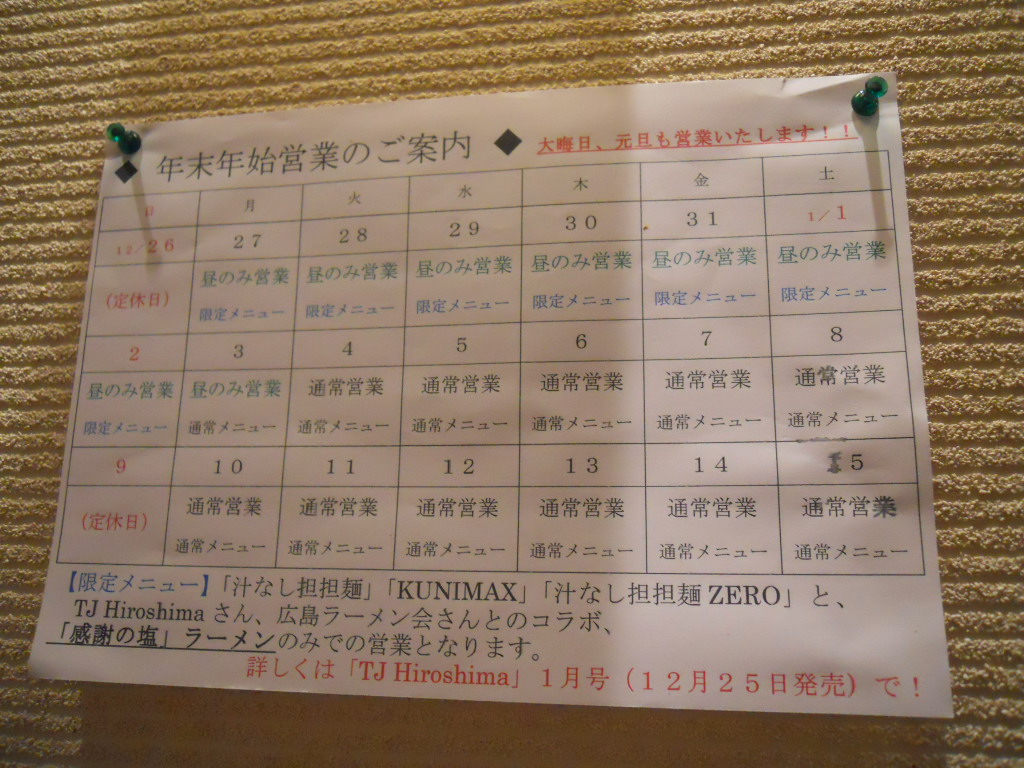 ◆ 年末年始営業のご案内 ◆ 大晦日、元旦も営業いたします！！
日 月 火 水 木 金 土
12／26 27 28 29 30 31 1／1
(定休日) 昼のみ営業 昼のみ営業 昼のみ営業 昼のみ営業 昼のみ営業 昼のみ営業
限定メニュー 限定メニュー 限定メニュー 限定メニュー 限定メニュー 限定メニュー
2 3 4 5 6 7 8
昼のみ営業 昼のみ営業 通常営業 通常営業 通常営業 通常営業 通常営業
限定メニュー 通常メニュー 通常メニュー 通常メニュー 通常メニュー 通常メニュー 通常メニュー
9 10 11 12 13 14 15
(定休日) 通常営業 通常営業 通常営業 通常営業 通常営業 通常営業
通常メニュー 通常メニュー 通常メニュー 通常メニュー 通常メニュー 通常メニュー
【限定メニュー】「汁なし担担麺」「KUNIMAX」「汁なし担担麺 ZERO」と、
TJ Hiroshima さん、広島ラーメン会さんとのコラボ、
「感謝の塩」ラーメンのみでの営業となります。
詳しくは「TJ Hiroshima」１月号（１２月２５日発売）で！